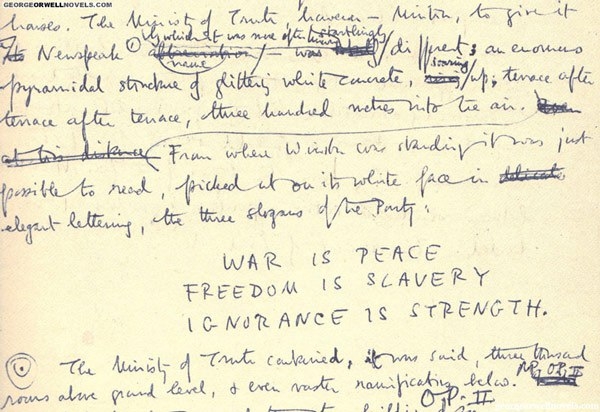 GEORGEORWELLNOVELS.COM
houses. The Ministry of Truth, however – Minitru, to give it
by which it was more often known startlingly
its Newspeak name – was different: an enormous
soaring
pyramidal structure of glittering white concrete, up, terrace after
terrace after terrace, three hundred metres into the air. Even
at this distance From where Winston was standing it was just
possible to read, picked out on its white face in delicate
elegant lettering, the three slogans of the Party:
WAR IS PEACE
FREEDOM IS SLAVERY
IGNORANCE IS STRENGTH.
The Ministry of Truth contained, it was said, three thousand
rooms above ground level, & even vaster ramifications below.
O.P. II